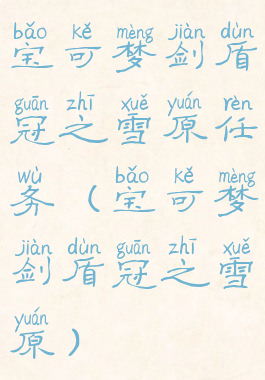 bǎo kě mèng jiàn dùn
宝可梦剑盾
guān zhī xuě yuán rèn
冠之雪原任
wù bǎo kě mèng
务（宝可梦
jiàn dùn guān zhī xuě
剑盾冠之雪
yuán
原）